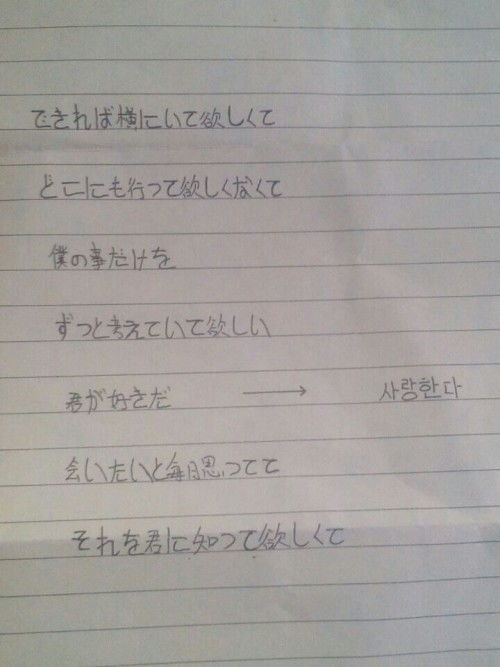 できれば横にいて欲しくて
どこにも行って欲しくなくて
僕の事だけを
ずっと考えていて欲しい
君が好きだ → 사랑한다
会いたいと毎日思ってて
それを君に知って欲しくて